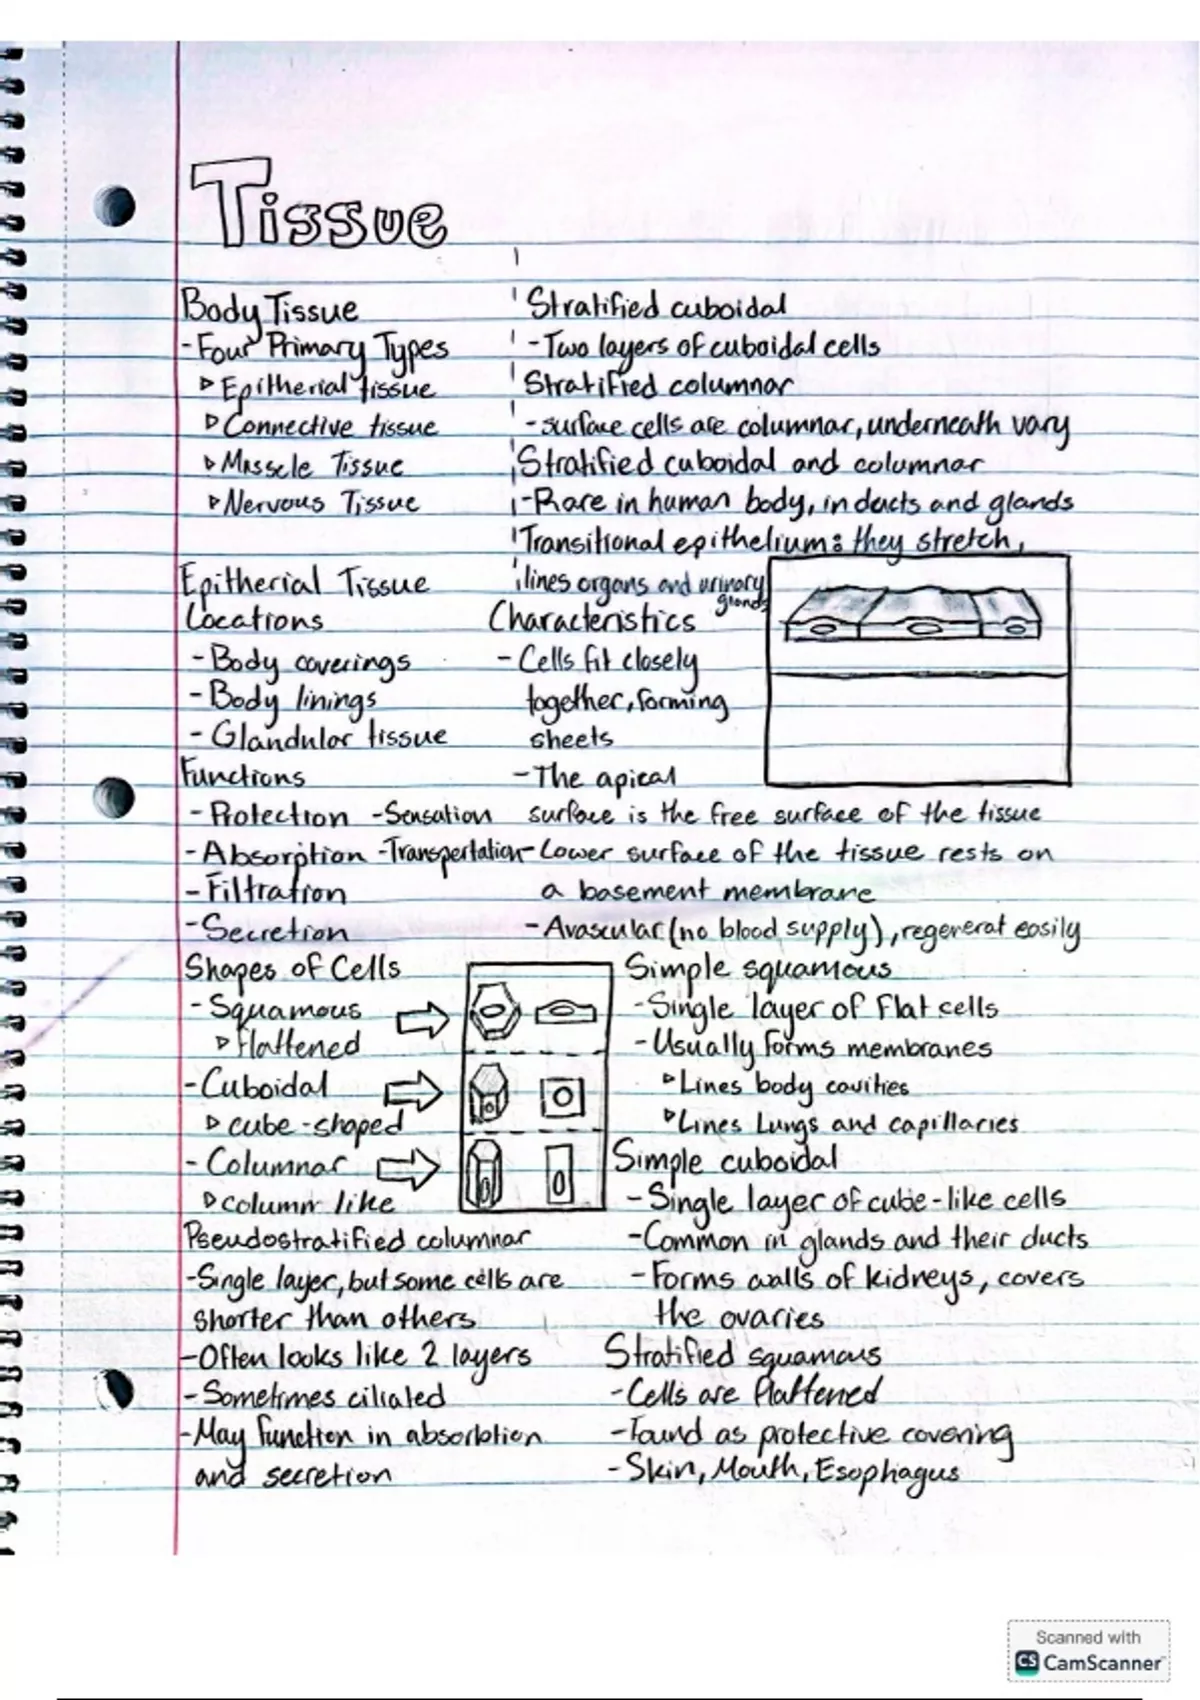 Tissue
Body Tissue
- Four Primary Types
▹ Epitherial tissue
▹ Connective tissue
▹ Musscle Tissue
▹ Nervous Tissue
Stratified cuboidal
- Two layers of cuboidal cells
Stratified columnar
- surface cells are columnar, underneath vary
Stratified cuboidal and columnar
- Rare in human body, in ducts and glands
Transitional epithelium: they stretch,
lines organs and urinary
glands
Epitherial Tissue
Locations
- Body coverings
- Body linings
- Glandular tissue
Functions
- Protection - Sensation
- Absorption - Transpertation
- Filtration
- Secretion
Characteristics
- Cells fit closely
together, forming
sheets
- The apical
surface is the free surface of the tissue
- Lower surface of the tissue rests on
a basement membrane
- Avascular (no blood supply), regenerat easily
Shapes of Cells
- Squamous
▹ flattened
- Cuboidal
▹ cube-shaped
- Columnar
▹ column like
Pseudostratified columnar
- Single layer, but some cells are
shorter than others
- Often looks like 2 layers
- Sometimes ciliated
- May function in absorbtion
and secretion
Simple squamous
- Single layer of flat cells
- Usually forms membranes
▹ Lines body cavities
▹ Lines Lungs and capillaries
Simple cuboidal
- Single layer of cube-like cells
- Common in glands and their ducts
- Forms walls of kidneys, covers
the ovaries
Stratified squamous
- Cells are flattened
- Found as protective covering
- Skin, Mouth, Esophagus
Scanned with
CS CamScanner